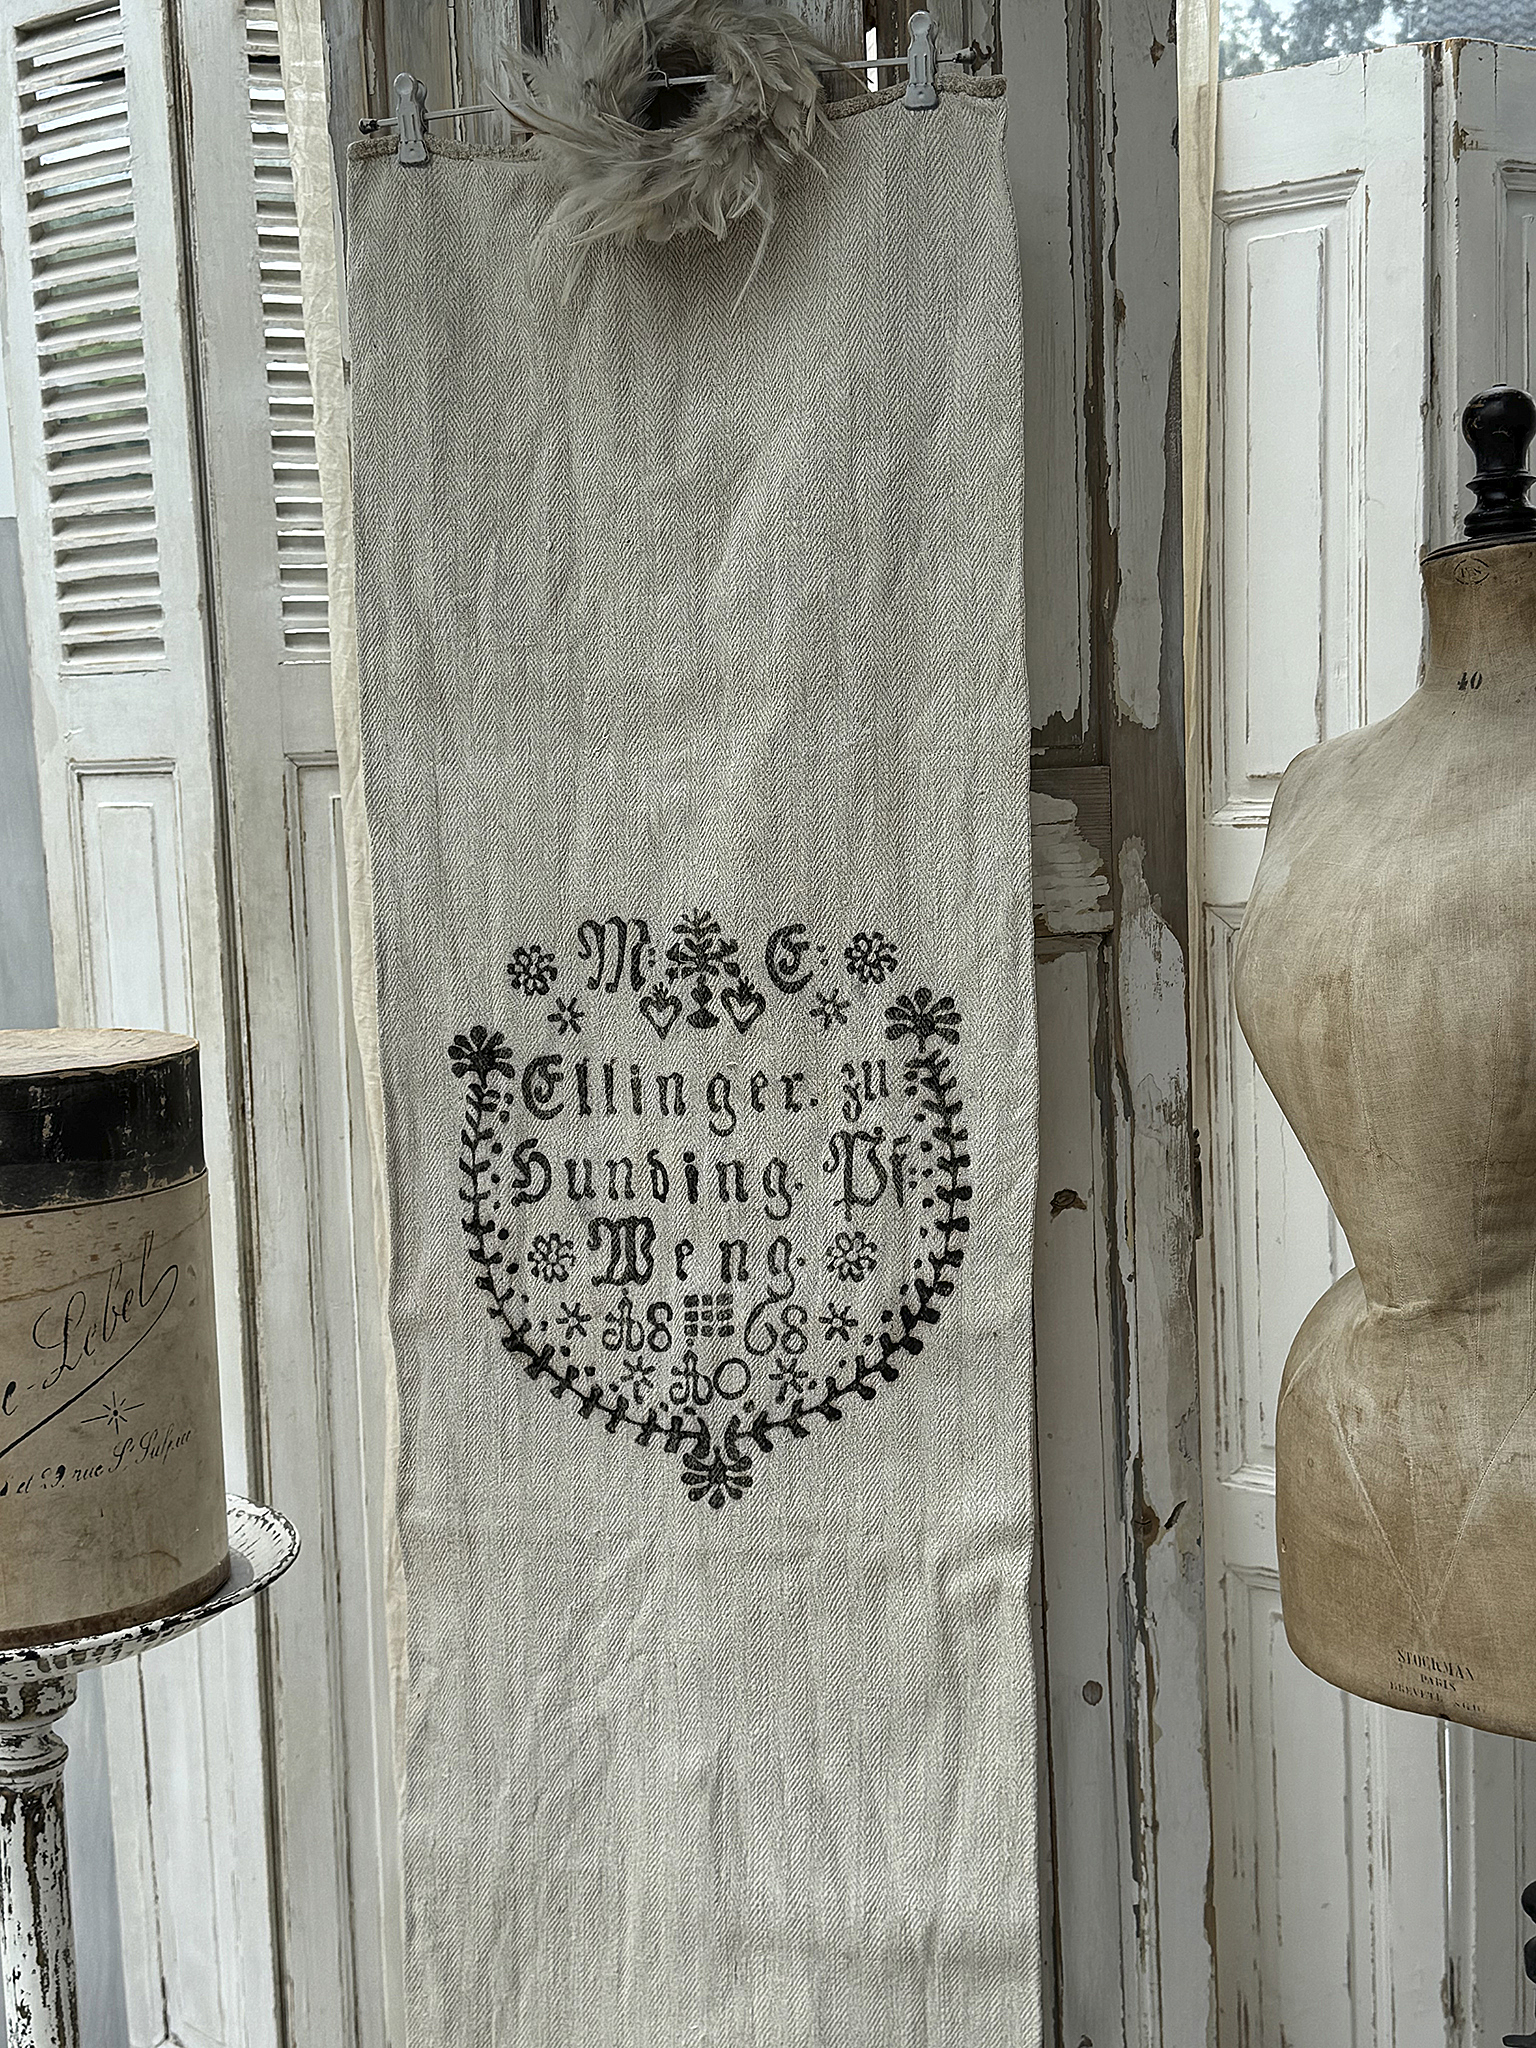 M: E:
Ellinger. zu
Hunding. Pf:
Weng.
18 68
10
40
STOCKMAN
PARIS
BREVETÉ
Lebel
et 29, rue St Sulpice